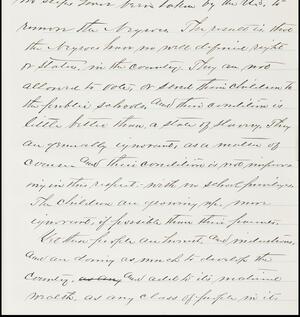 no steps have been taken by the U.S. to
remove the Negroes. The result is that
the Negroes have no well defined right
or status, in the country. They are not
allowed to vote, or send their children to
the public schools, and their condition is
little better than a state of slavery. They
are generally ignorant, as a matter of
course and their condition is not improv
ing in this respect, with no school privileges
The children are growing up, more
ignorant, if possible than their parents.
Yet these people are honest and industrious,
and are doing as much to develop the
country, and add to its material
wealth, as any class of people in its